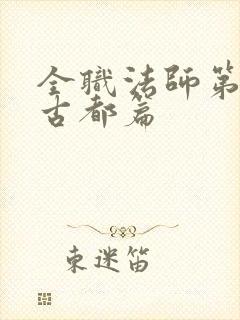 全職法師第
古都篇
東迷笛